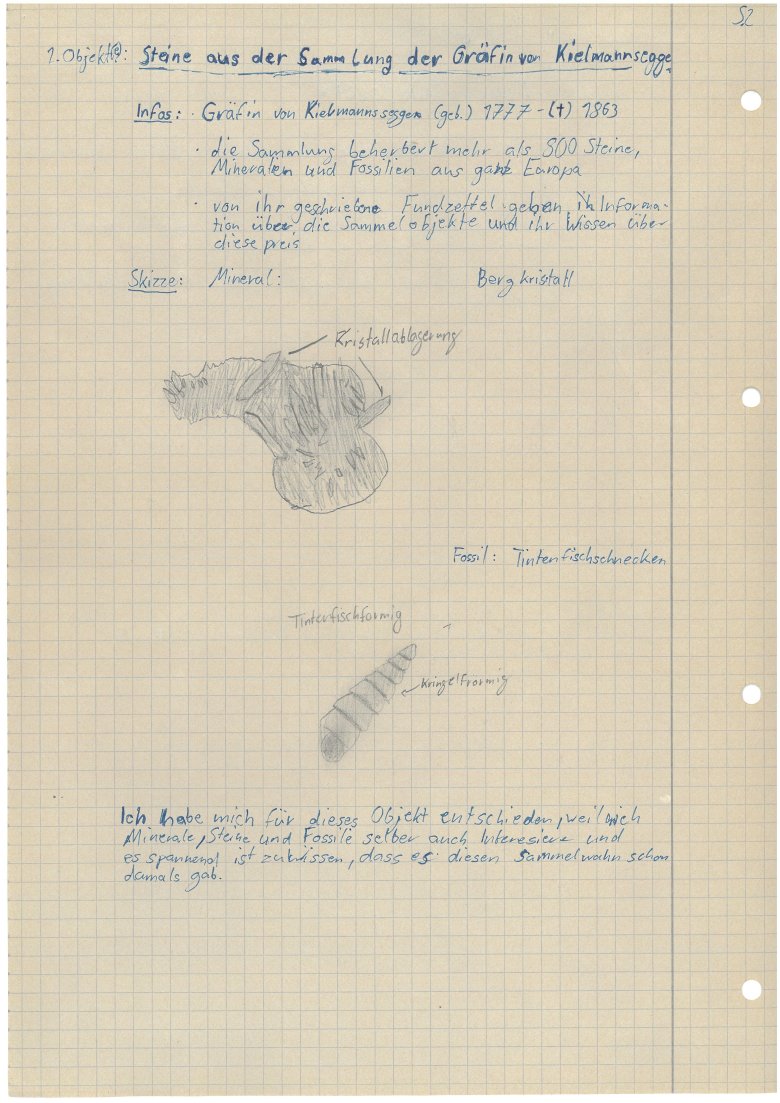 S.2
1. Objekt(e): Steine aus der Sammlung der Gräfin von Kielmannsegge
Infos: · Gräfin von Kielmannsseggen (geb.) 1777 - (†) 1863
· die Sammlung beherbert mehr als 800 Steine,
Mineralien und Fossilien aus ganz Europa
· von ihr geschriebene Fundzettel geben in Informa-
tion über die Sammelobjekte und ihr Wissen über
diese preis
Skizze: Mineral: Bergkristall
Kristallablagerung
Fossil: Tintenfischschnecken
Tintenfischförmig
Kringelförmig
Ich habe mich für dieses Objekt entschieden, weil mich
Minerale, Steine und Fossile selber auch Interesiere und
es spannend ist zuwissen, dass es diesen Sammelwahn schon
damals gab.